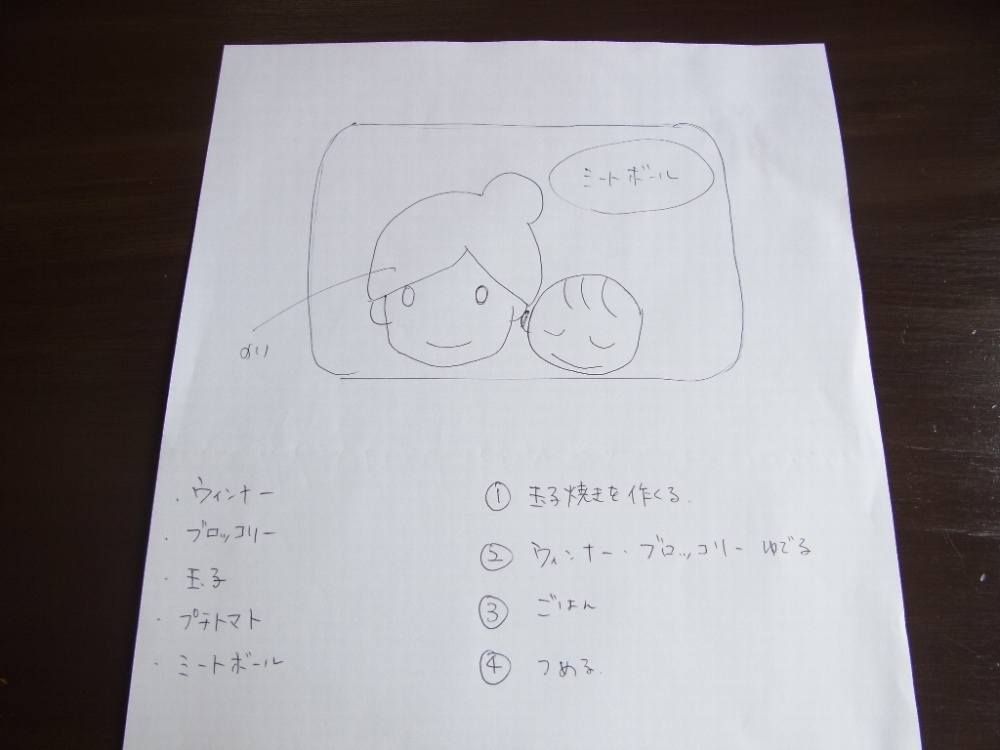 ミートボール
のり
・ウィンナー
・ブロッコリー
・玉子
・プチトマト
・ミートボール
① 玉子焼きを作くる.
② ウィンナー・ブロッコリー ゆでる
③ ごはん
④ つめる.